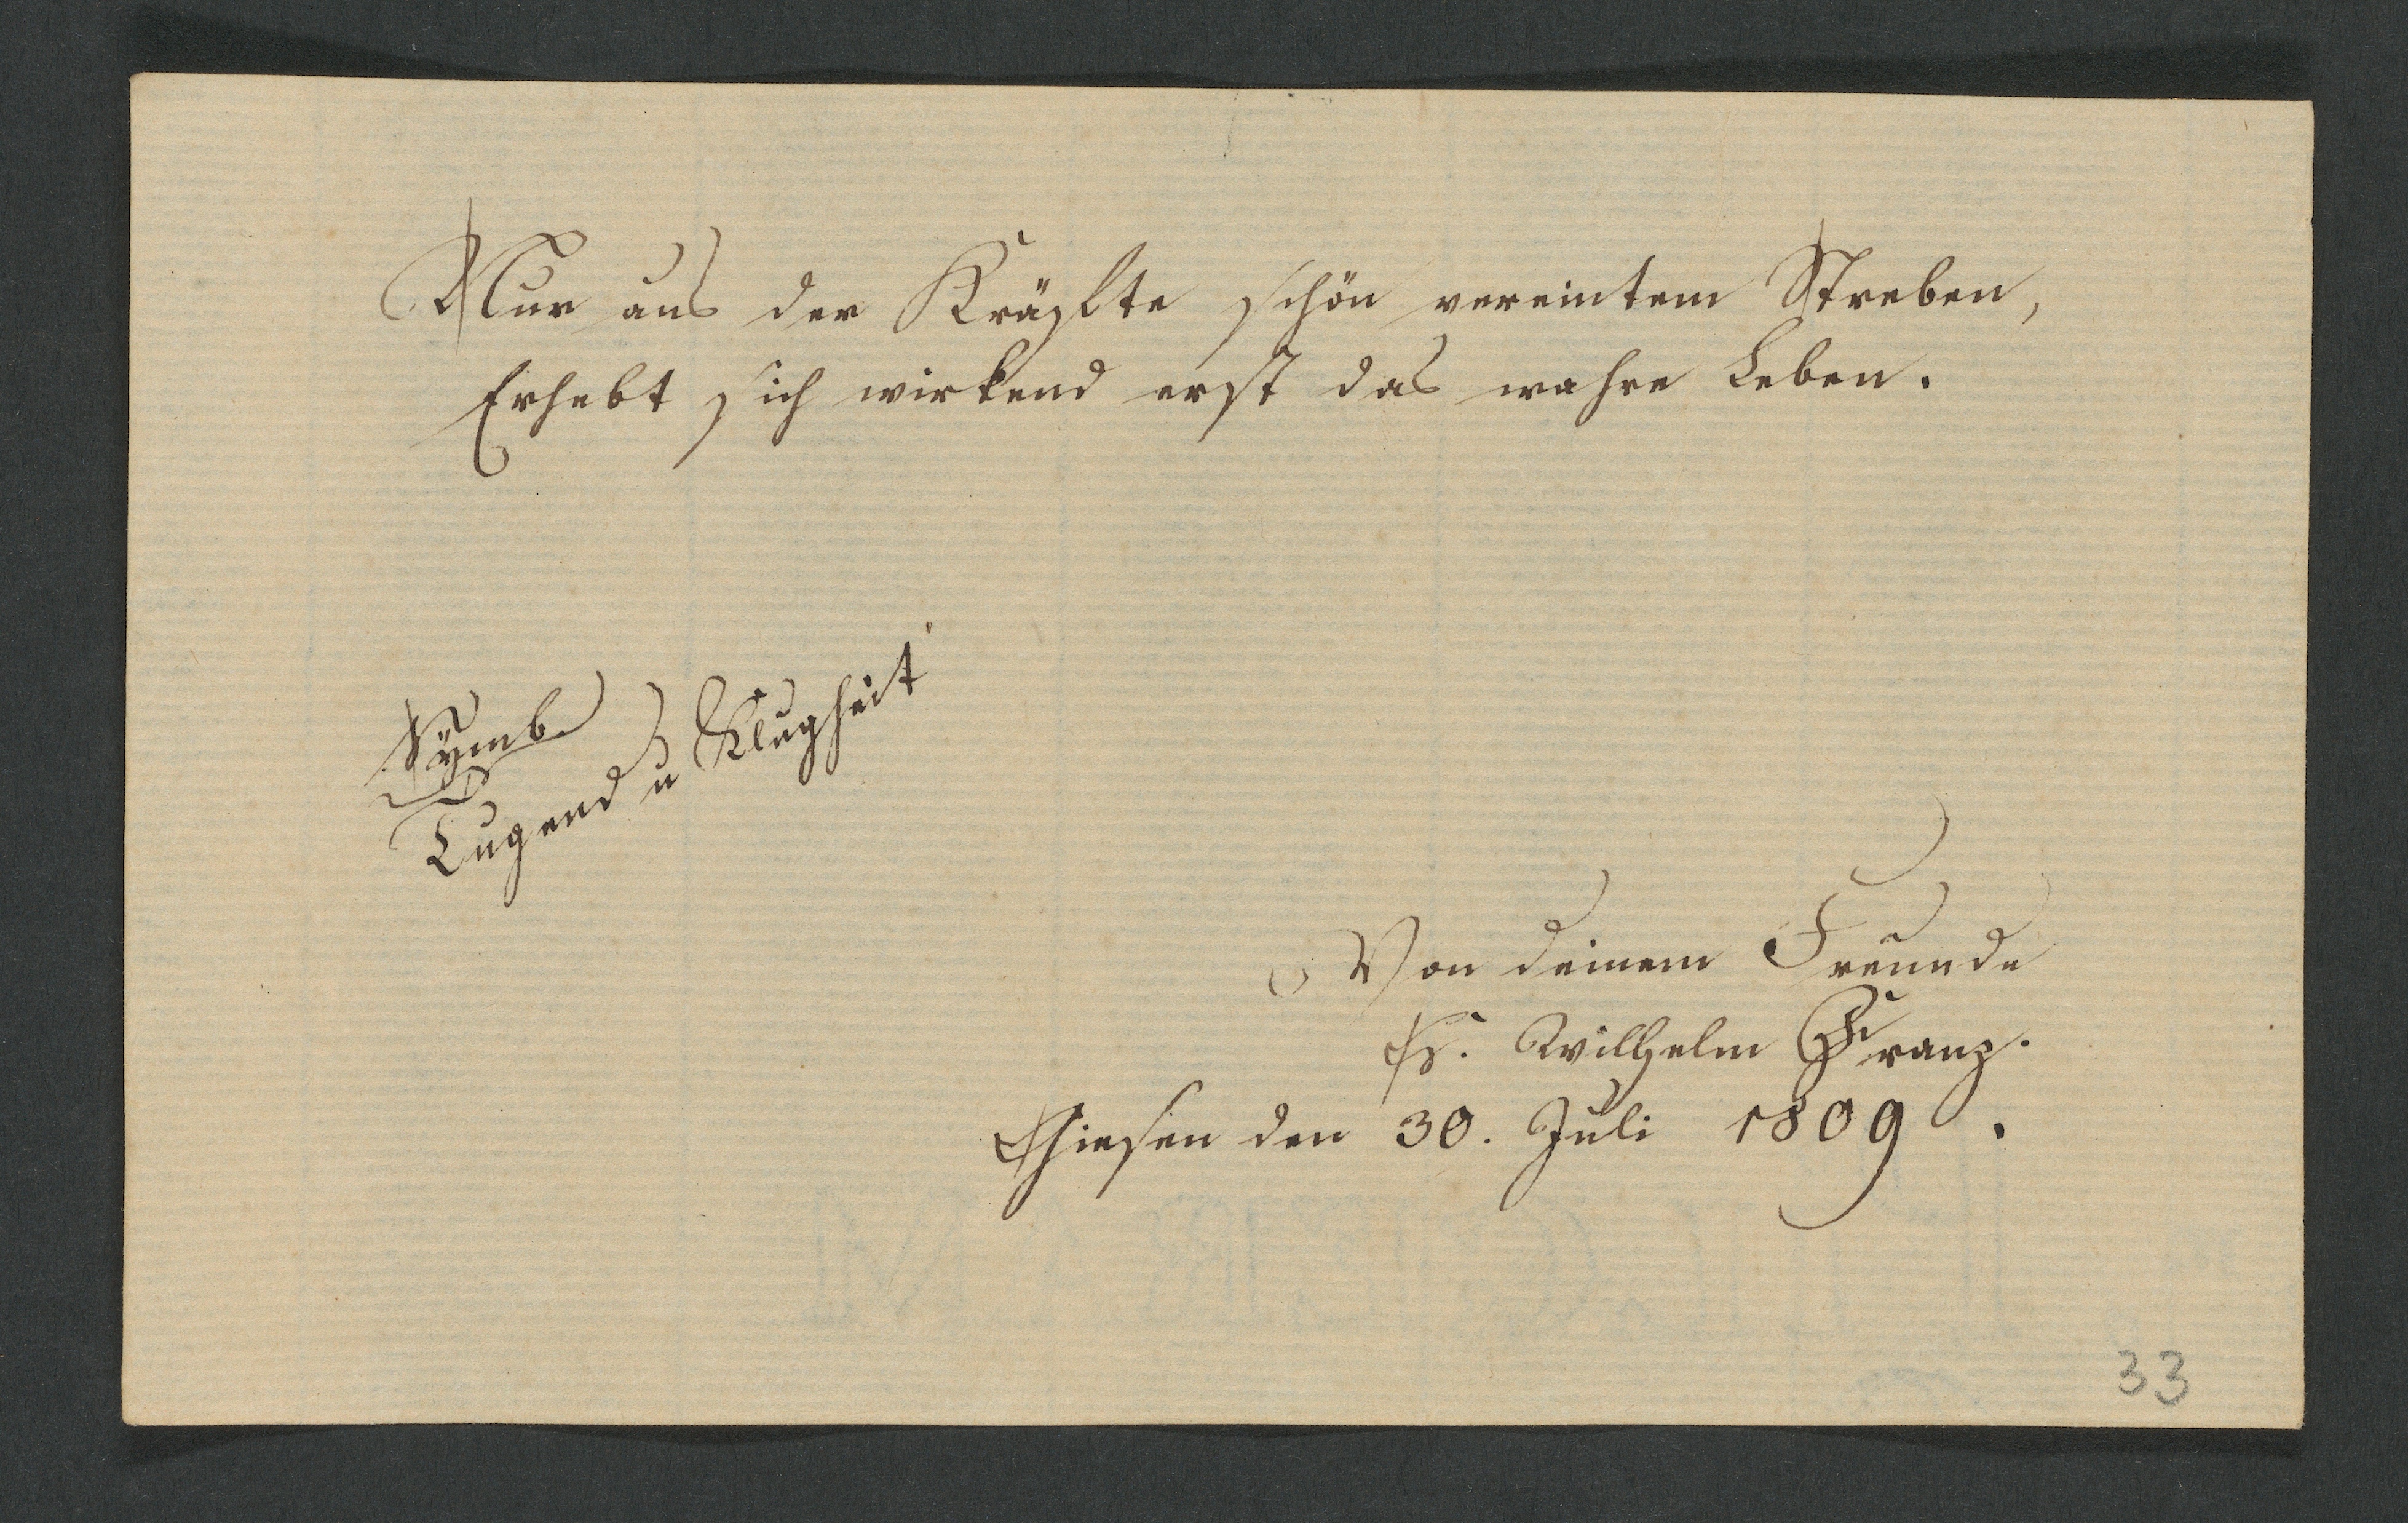 Nur aus der Kräfte schön vereintem Streben,
Erhebt sich wirkend erst das wahre Leben.
Symb.
Tugend u Klugheit
Von deinem Freunde
Wilhelm Franz.
den 30. Juli 1809.
33